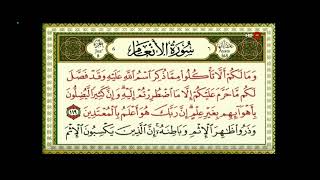 سُورَةُ الْأَنْعَامِ
وَمَا لَكُمْ أَلَّا تَأْكُلُوا مِمَّا ذُكِرَ اسْمُ اللَّهِ عَلَيْهِ وَقَدْ فَصَّلَ
لَكُم مَّا حَرَّمَ عَلَيْكُمْ إِلَّا مَا اضْطُرِرْتُمْ إِلَيْهِ وَإِنَّ كَثِيرًا لَّيُضِلُّونَ
بِأَهْوَائِهِم بِغَيْرِ عِلْمٍ إِنَّ رَبَّكَ هُوَ أَعْلَمُ بِالْمُعْتَدِينَ ١١٩
وَذَرُوا ظَاهِرَ الْإِثْمِ وَبَاطِنَهُ إِنَّ الَّذِينَ يَكْسِبُونَ الْإِثْمَ